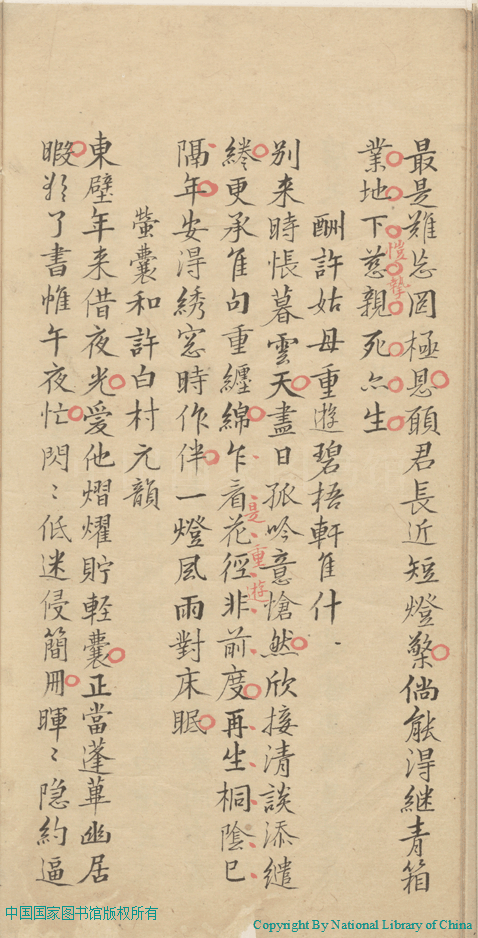 最是難忘罔極恩願君長近短燈檠倘能得継青箱
業地下慈親死亦生
愷摯
酬許姑母重遊碧梧軒隹什
別来時悵暮雲天盡日孤吟意愴然欣接清談添繾
綣更承隹句重纒綿乍看花徑非前度再生桐陰已
是重遊
隔年安得綉窓時作伴一燈風雨對床眠
螢囊和許白村元韻
東壁年来借夜光愛他熠燿貯軽囊正當蓬蓽幽居
暇㱝了書帷午夜忙閃〻低迷侵簡冊暉〻隐約逼
中国国家图书馆版权所有
Copyright By National Library of China